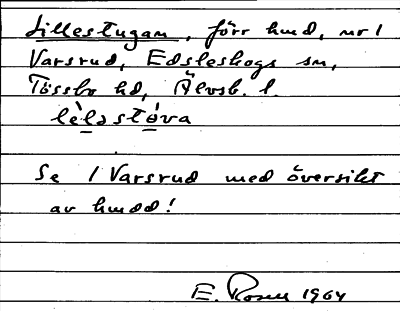 Lillestugan, förr hmd, nr 1
Varsrud, Edsleskogs sn,
Tössbo hd, Älvsb. l.
lèlɔstóva
Se 1 Varsrud med översikt
av hmdd!
E. Rosell 1964